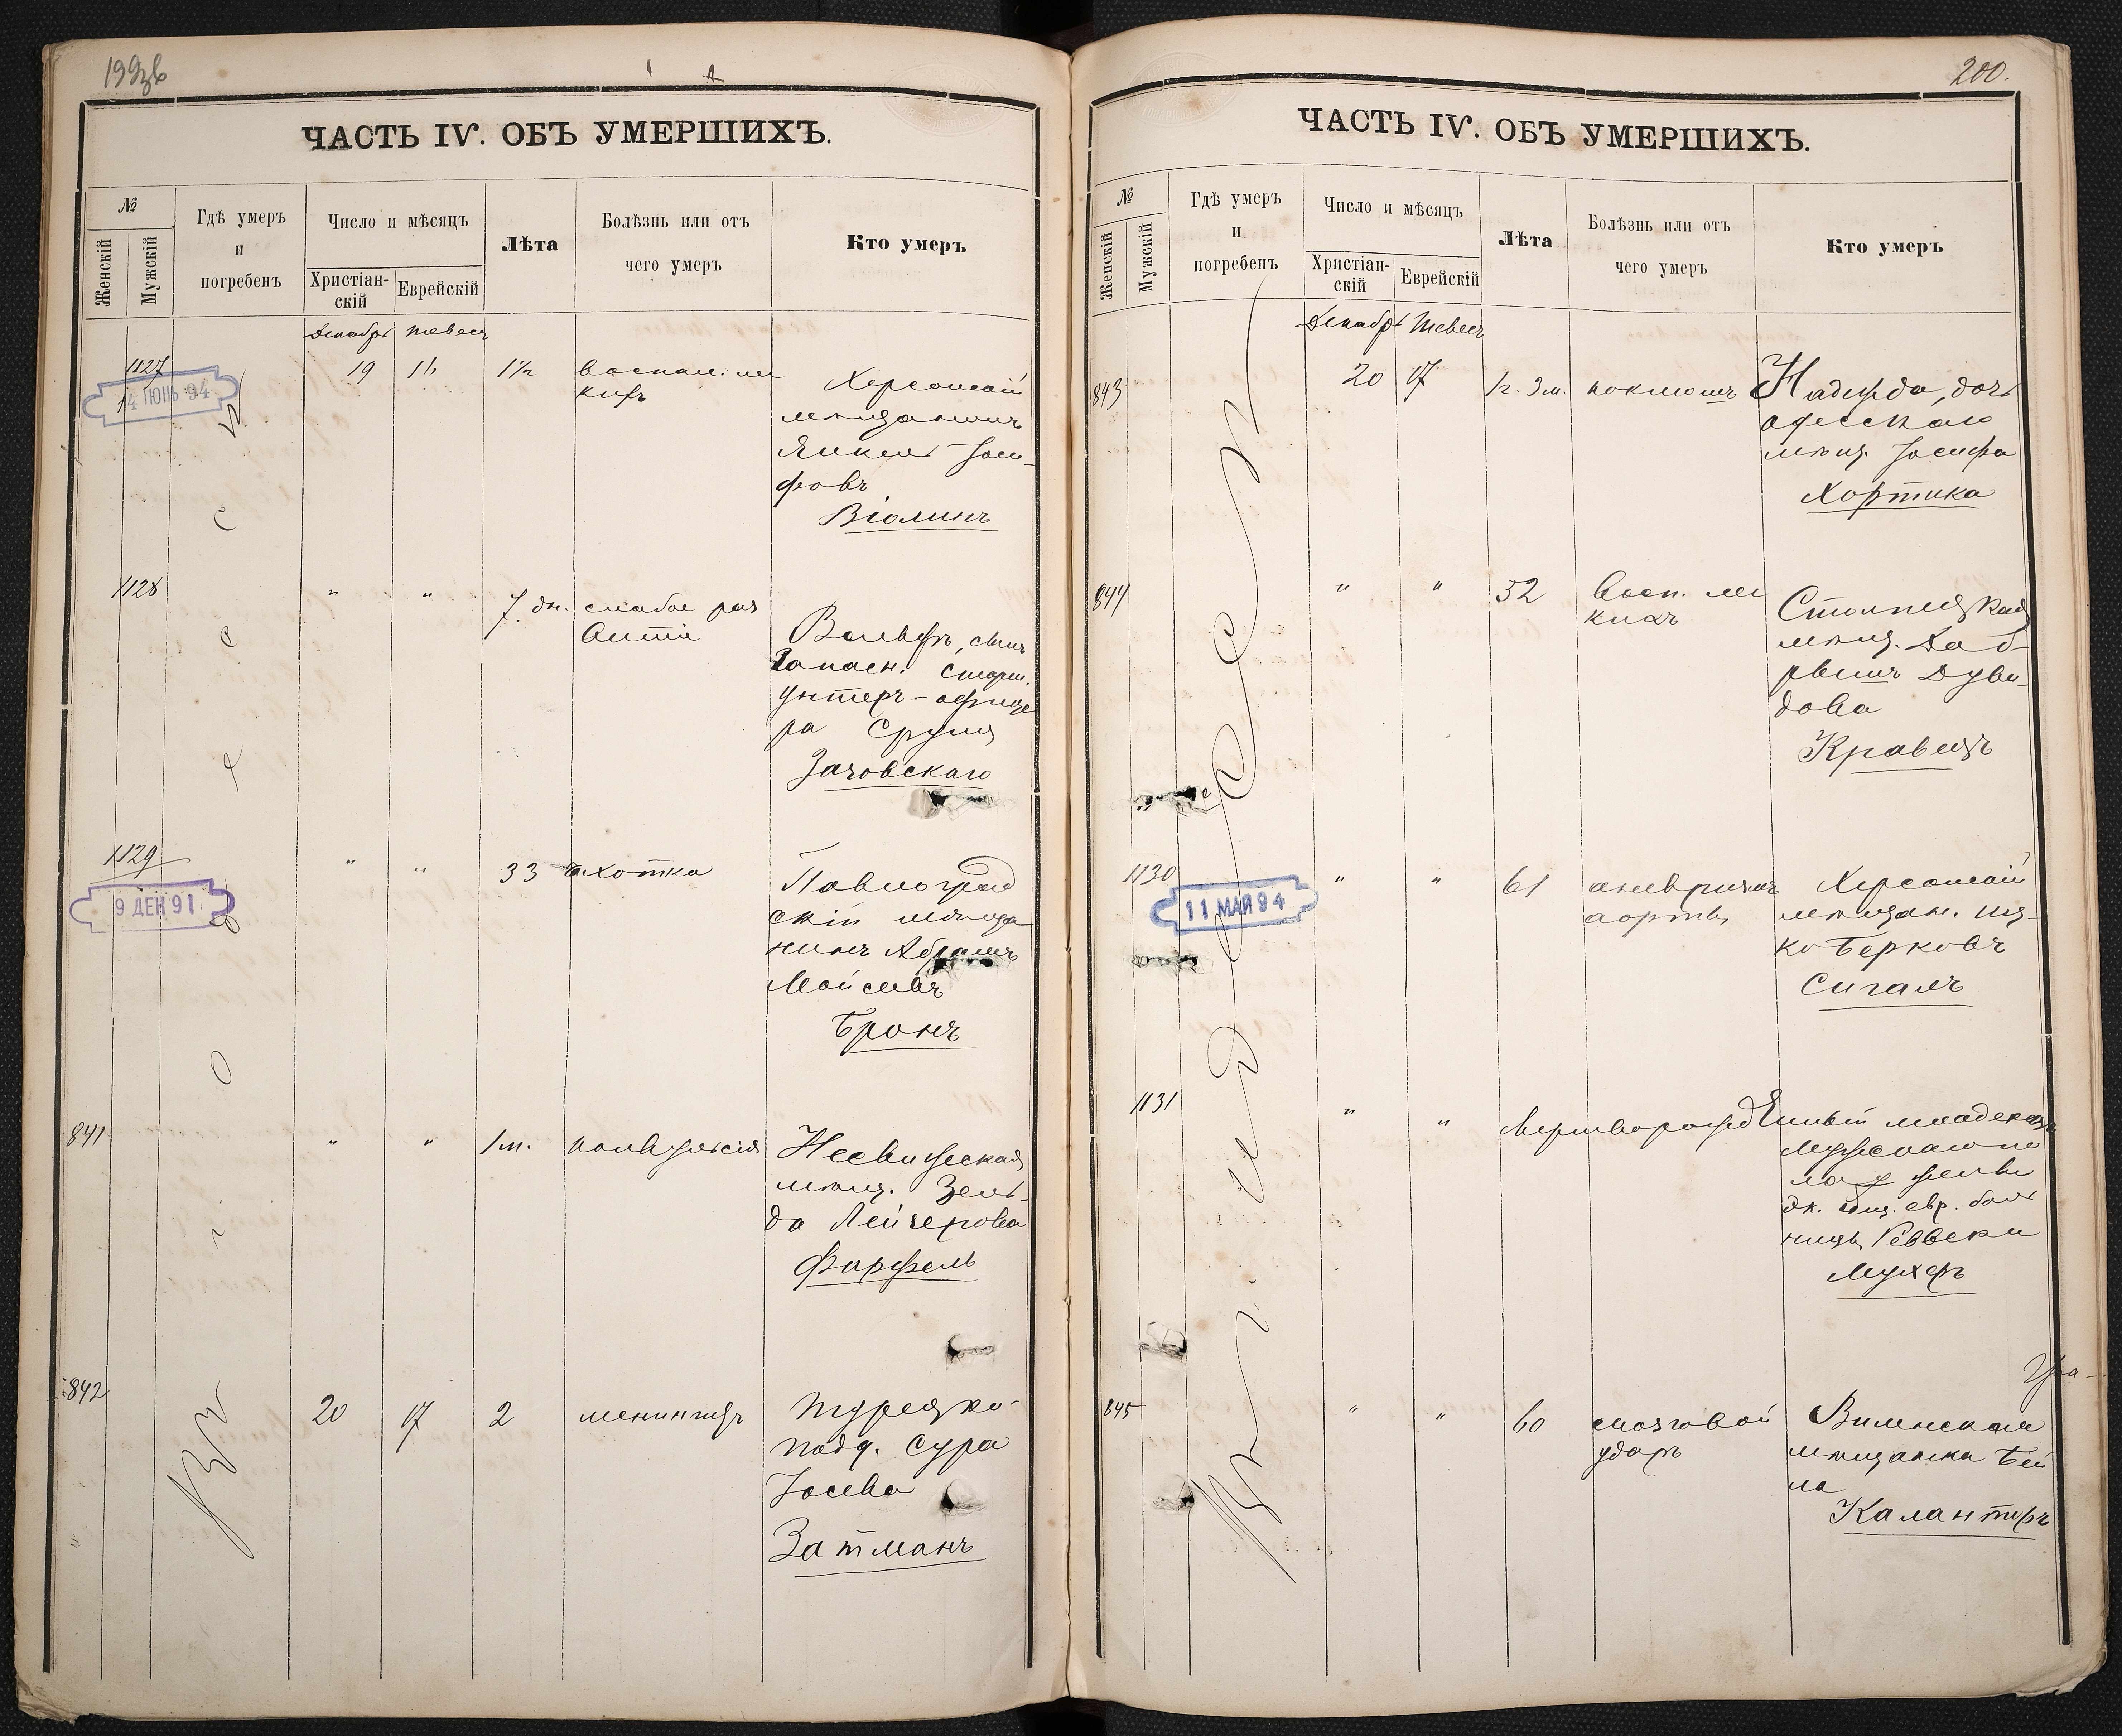 ЧАСТЬ IV. ОБЪ УМЕРШИХЪ.
№
Женскій
Мужскій
Гдѣ умеръ
и
погребенъ
Число и мѣсяцъ
Христіан-
скій
Еврейскій
Лѣта
Болѣзнь или отъ
чего умеръ
Кто умеръ
Декабрь Тевесъ
1127
14 ІЮНЬ 94
19
1½
Воспал. лег
кихъ
Херсонскій
мѣщанинъ
Янкель Іоси-
фовъ
Віолинъ
1128
"
"
7 дн.
слабое раз
витіе
Вольфъ, сынъ
Запасн. старш.
унтеръ-офице
ра Сруля
Зачовскаго
1129
9 ДЕК 91
"
"
33
чахотка
Павлоград
скій мѣща
нинъ Абрамъ
Мойсеевъ
Бронъ
841
"
"
1 м.
конвульсія
Несвижская
мѣщ. Зель-
да Лейзерова
Фарфель
842
20
17
2
менингитъ
Турецко-
подд. Сура
Іосева
Затманъ
Въ Одессѣ
200.
ЧАСТЬ IV. ОБЪ УМЕРШИХЪ.
№
Женскій
Мужскій
Гдѣ умеръ
и
погребенъ
Число и мѣсяцъ
Христіан-
скій
Еврейскій
Лѣта
Болѣзнь или отъ
чего умеръ
Кто умеръ
Декабрь Тевесъ
843
20
17
1 г. 3 м.
коклюшъ
Надежда, дочь
одесскаго
мѣщ. Іосифа
Хортика
844
"
"
52
Восп. лег
кихъ
мѣщ. Доб-
рышъ Дуви-
дова
Кравецъ
1130
11 МАЙ 94
"
"
61
аневризмъ
аорты
Херсонскій
мѣщан. Иц-
ко Берковъ
Сигалъ
1131
"
"
Мертворожденный младенецъ
мужскаго по
ла
евр. боль
ницы Реввеки
Мухеръ
845
"
"
60
мозговой
ударъ
Виленская
мѣщанка Бей
ла
Калантыръ